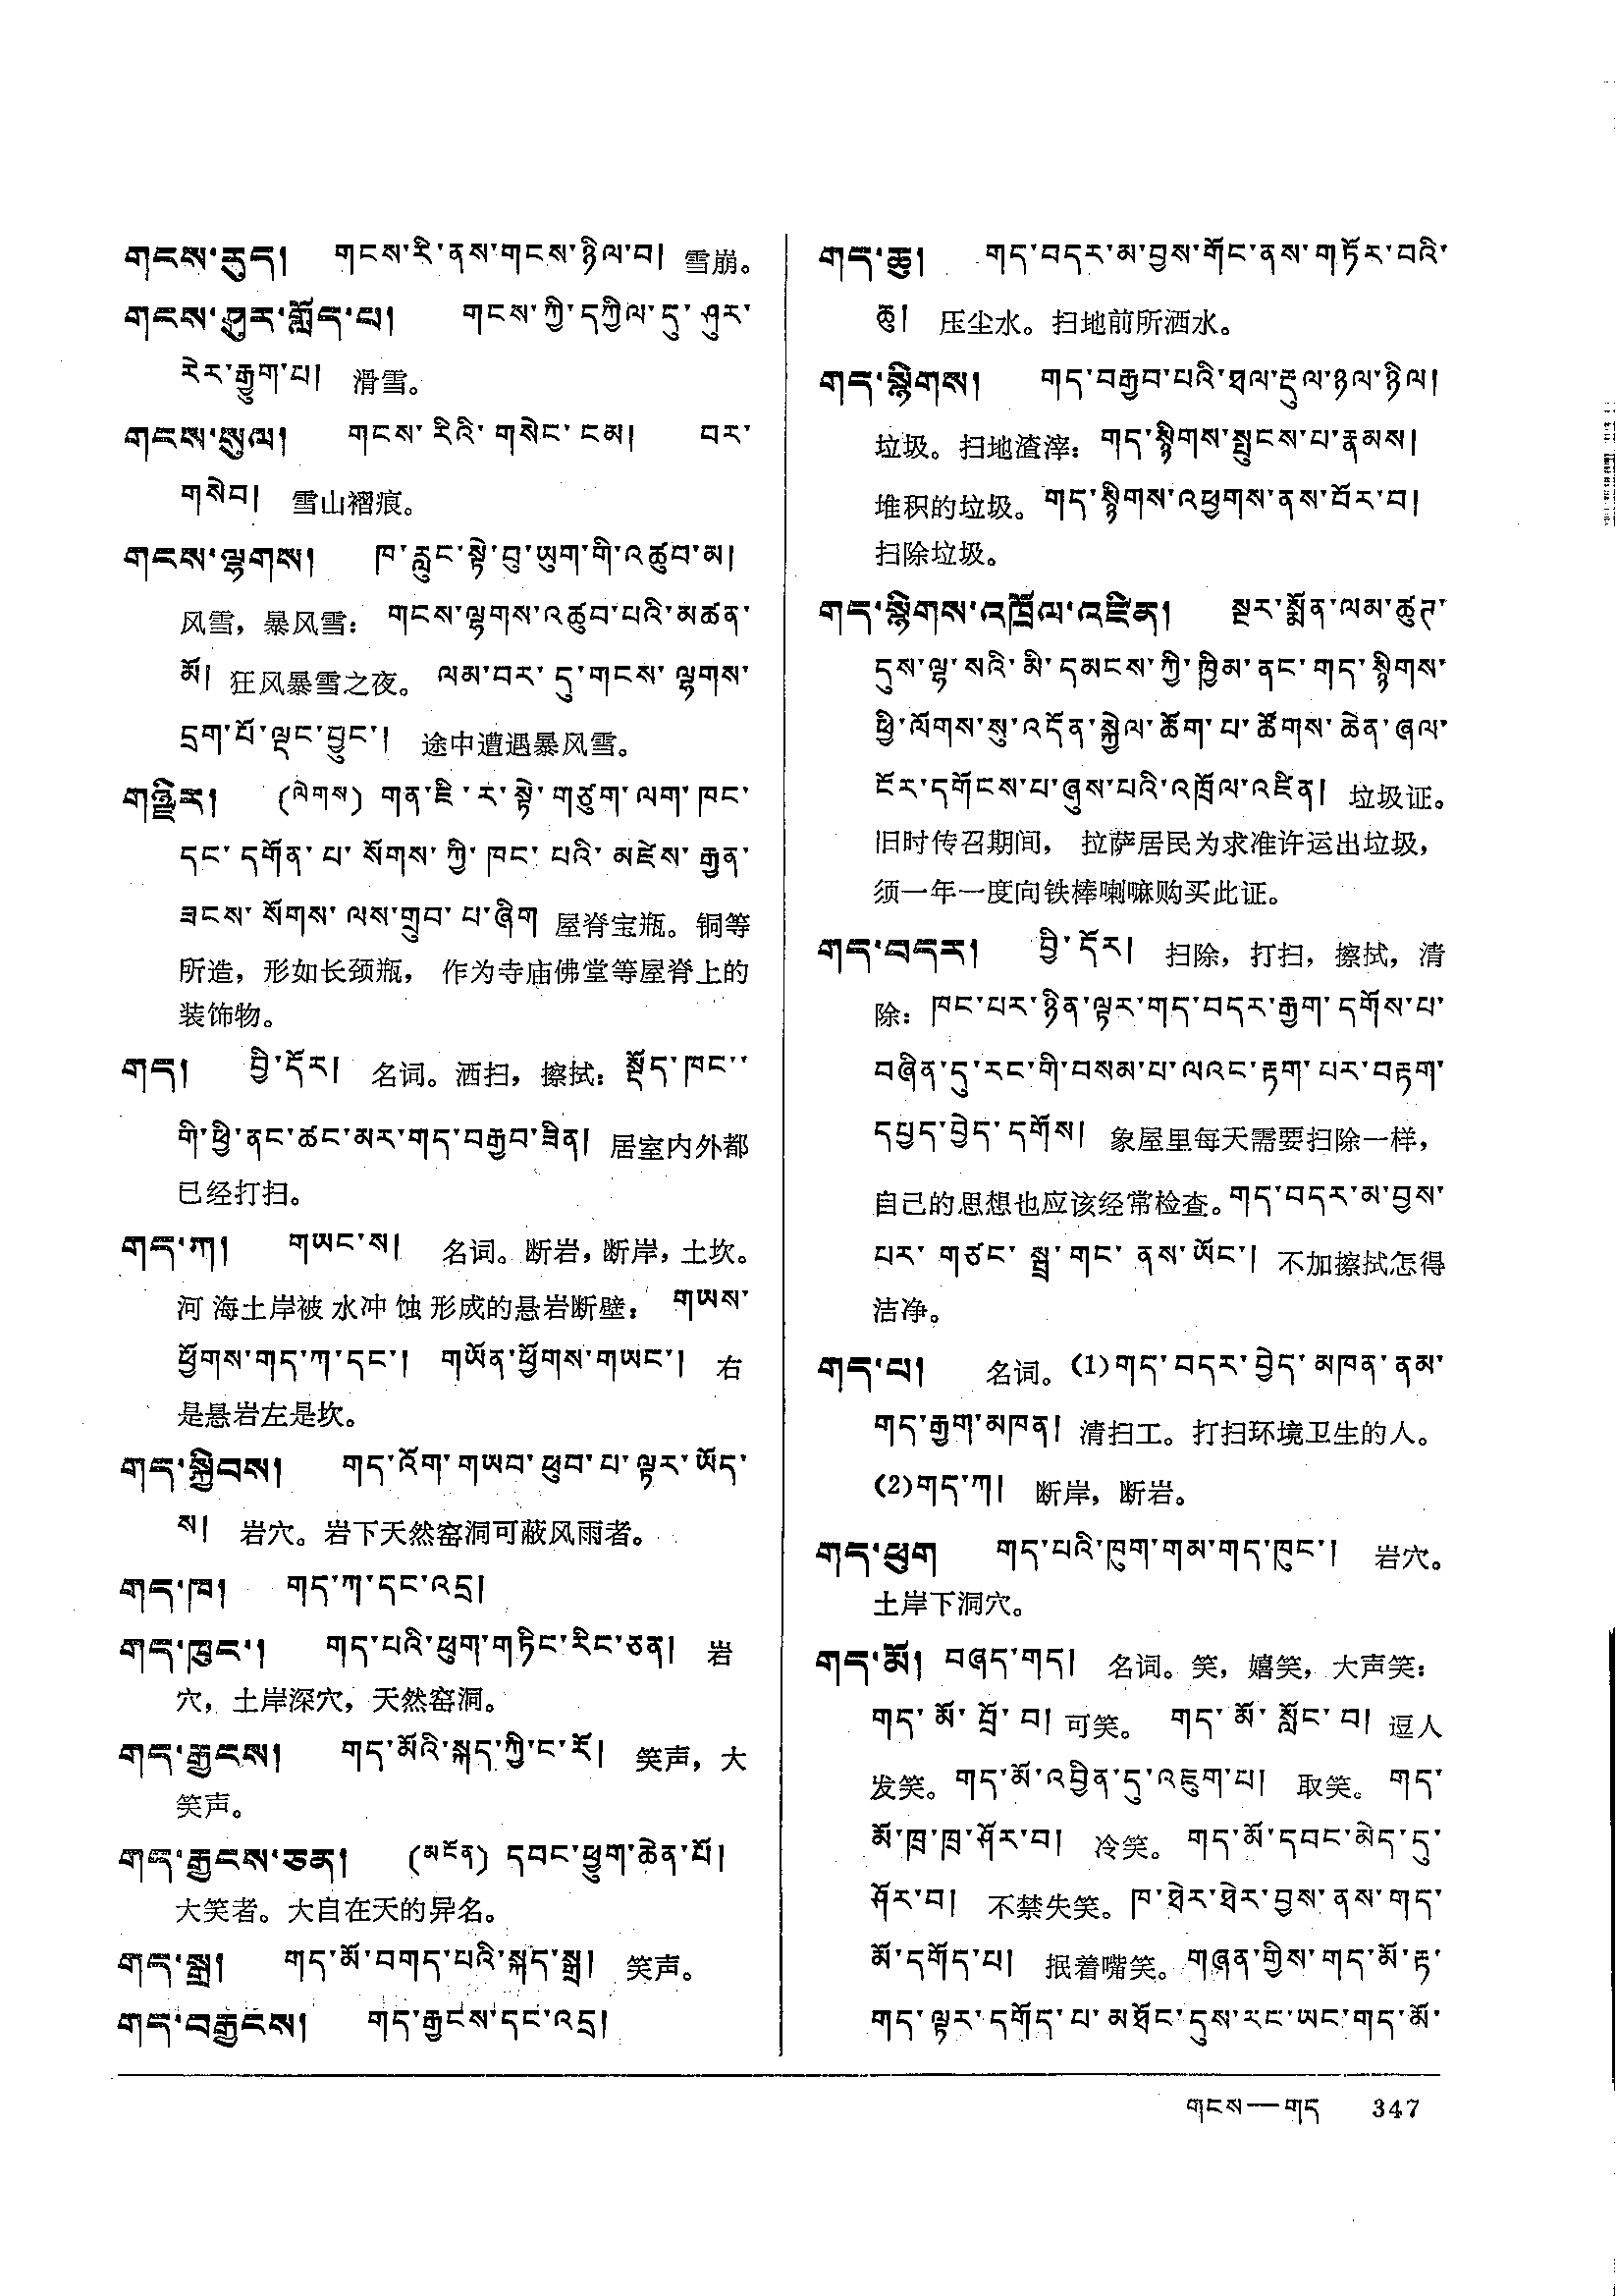 གངས་རུད། གངས་རི་ནས་གངས་ཉིལ་བ། 雪崩。
གངས་ཤུར་གློད་པ། གངས་ཀྱི་དཀྱིལ་དུ་ཤུར་
རེར་རྒྱུག་པ། 滑雪。
གངས་སུལ། གངས་རིའི་གསེང་ངམ། བར་
གསེབ། 雪山褶痕。
གངས་ལྷགས། ཁ་རླུང་སྟེ་བུ་ཡུག་གི་འཚུབ་མ།
风雪，暴风雪： གངས་ལྷགས་འཚུབ་པའི་མཚན་
མོ། 狂风暴雪之夜。 ལམ་བར་དུ་གངས་ལྷགས་
དྲག་པོ་ལྡང་བྱུང་། 途中遭遇暴风雪。
གཉྫིར། (ལེགས) གན་ཇི་ར་སྟེ་གཙུག་ལག་ཁང་
དང་དགོན་པ་སོགས་ཀྱི་ཁང་པའི་མཛེས་རྒྱན་
ཟངས་སོགས་ལས་གྲུབ་པ་ཞིག 屋脊宝瓶。铜等
所造，形如长颈瓶，作为寺庙佛堂等屋脊上的
装饰物。
གད། བྱི་དོར། 名词。洒扫，擦拭： སྡོད་ཁང་
གི་ཕྱི་ནང་ཚང་མར་གད་བརྒྱབ་ཟིན། 居室内外都
已经打扫。
གད་ཀ། གཡང་ས། 名词。断岩，断岸，土坎。
河海土岸被水冲蚀形成的悬岩断壁： གཡས་
ཕྱོགས་གད་ཀ་དང་། གཡོན་ཕྱོགས་གཡང་། 右
是悬岩左是坎。
གད་སྐྱིབས། གད་འོག་གཡབ་ཕུབ་པ་ལྟར་ཡོད་
ས། 岩穴。岩下天然窑洞可蔽风雨者。
གད་ཁ། གད་ཀ་དང་འདྲ།
གད་ཁུང་། གད་པའི་ཕུག་གཏིང་རིང་ཅན། 岩
穴，土岸深穴，天然窑洞。
གད་རྒྱངས། གད་མོའི་སྐད་ཀྱི་ང་རོ། 笑声，大
笑声。
གད་རྒྱངས་ཅན། (མངོན) དབང་ཕྱུག་ཆེན་པོ།
大笑者。大自在天的异名。
གད་སྒྲ། གད་མོ་བགད་པའི་སྐད་སྒྲ། 笑声。
གད་བརྒྱངས། གད་རྒྱངས་དང་འདྲ།
གད་ཆུ། གད་བདར་མ་བྱས་གོང་ནས་གཏོར་བའི་
ཆུ། 压尘水。扫地前所洒水。
གད་སྙིགས། གད་བརྒྱབ་པའི་ཐལ་རྡུལ་ཉལ་ཉིལ།
垃圾。扫地渣滓： གད་སྙིགས་སྤུངས་པ་རྣམས།
堆积的垃圾。 གད་སྙིགས་འཕྱགས་ནས་བོར་བ།
扫除垃圾。
གད་སྙིགས་འཁྲོལ་འཛིན། སྔར་སྨོན་ལམ་ཚུད་
དུས་ལྷ་སའི་མི་དམངས་ཀྱི་ཁྱིམ་ནང་གད་སྙིགས་
ཕྱི་ལོགས་སུ་འདོན་སྐྱེལ་ཆོག་པ་ཚོགས་ཆེན་ཞལ་
ངོར་དགོངས་པ་ཞུས་པའི་འཁྲོལ་འཛིན། 垃圾证。
旧时传召期间，拉萨居民为求准许运出垃圾，
须一年一度向铁棒喇嘛购买此证。
གད་བདར། བྱི་དོར། 扫除，打扫，擦拭，清
除： ཁང་པར་ཉིན་ལྟར་གད་བདར་རྒྱག་དགོས་པ་
བཞིན་དུ་རང་གི་བསམ་པ་ལའང་རྟག་པར་བརྟག་
དཔྱད་བྱེད་དགོས། 象屋里每天需要扫除一样，
自己的思想也应该经常检查。གད་བདར་མ་བྱས་
པར་གཙང་སྦྲ་གང་ནས་ཡོང་། 不加擦拭怎得
洁净。
གད་པ། 名词。(1)གད་བདར་བྱེད་མཁན་ནམ་
གད་རྒྱག་མཁན། 清扫工。打扫环境卫生的人。
(2)གད་ཀ། 断岸，断岩。
གད་ཕུག གད་པའི་ཁུག་གམ་གད་ཁུང་། 岩穴。
土岸下洞穴。
གད་མོ། བཞད་གད། 名词。笑，嬉笑，大声笑：
གད་མོ་བྲོ་བ། 可笑。 གད་མོ་སློང་བ། 逗人
发笑。གད་མོ་འབྱིན་དུ་འཇུག་པ། 取笑。 གད་
མོ་ཁྲ་ཁྲ་ཤོར་བ། 冷笑。 གད་མོ་དབང་མེད་དུ་
ཤོར་བ། 不禁失笑。 ཁ་ཐེར་ཐེར་བྱས་ནས་གད་
མོ་དགོད་པ། 抿着嘴笑。གཞན་གྱིས་གད་མོ་རྟ་
གད་ལྟར་དགོད་པ་མཐོང་དུས་རང་ཡང་གད་མོ་
གངས—གད 347